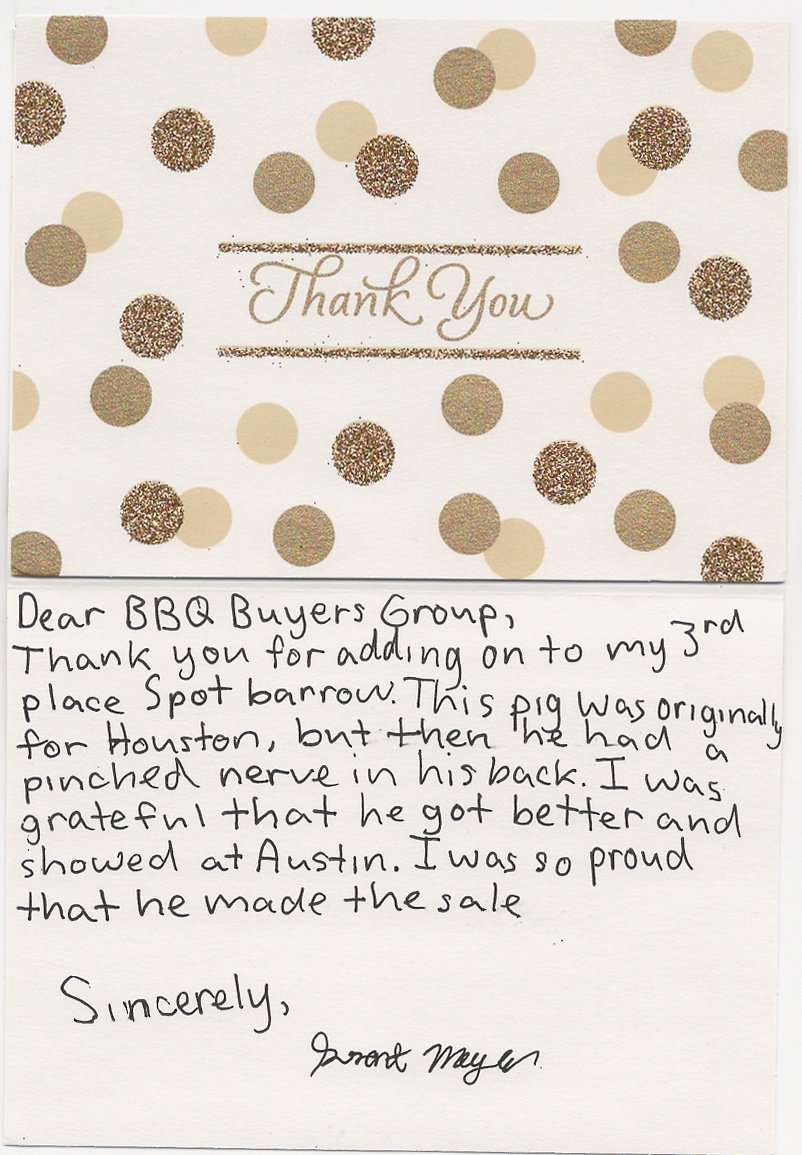 Thank You
Dear BBQ Buyers Group,
Thank you for adding on to my 3rd
place Spot barrow. This pig was originally
for Houston, but then he had a
pinched nerve in his back. I was
grateful that he got better and
showed at Austin. I was so proud
that he made the sale
Sincerely,
Grant Meyer